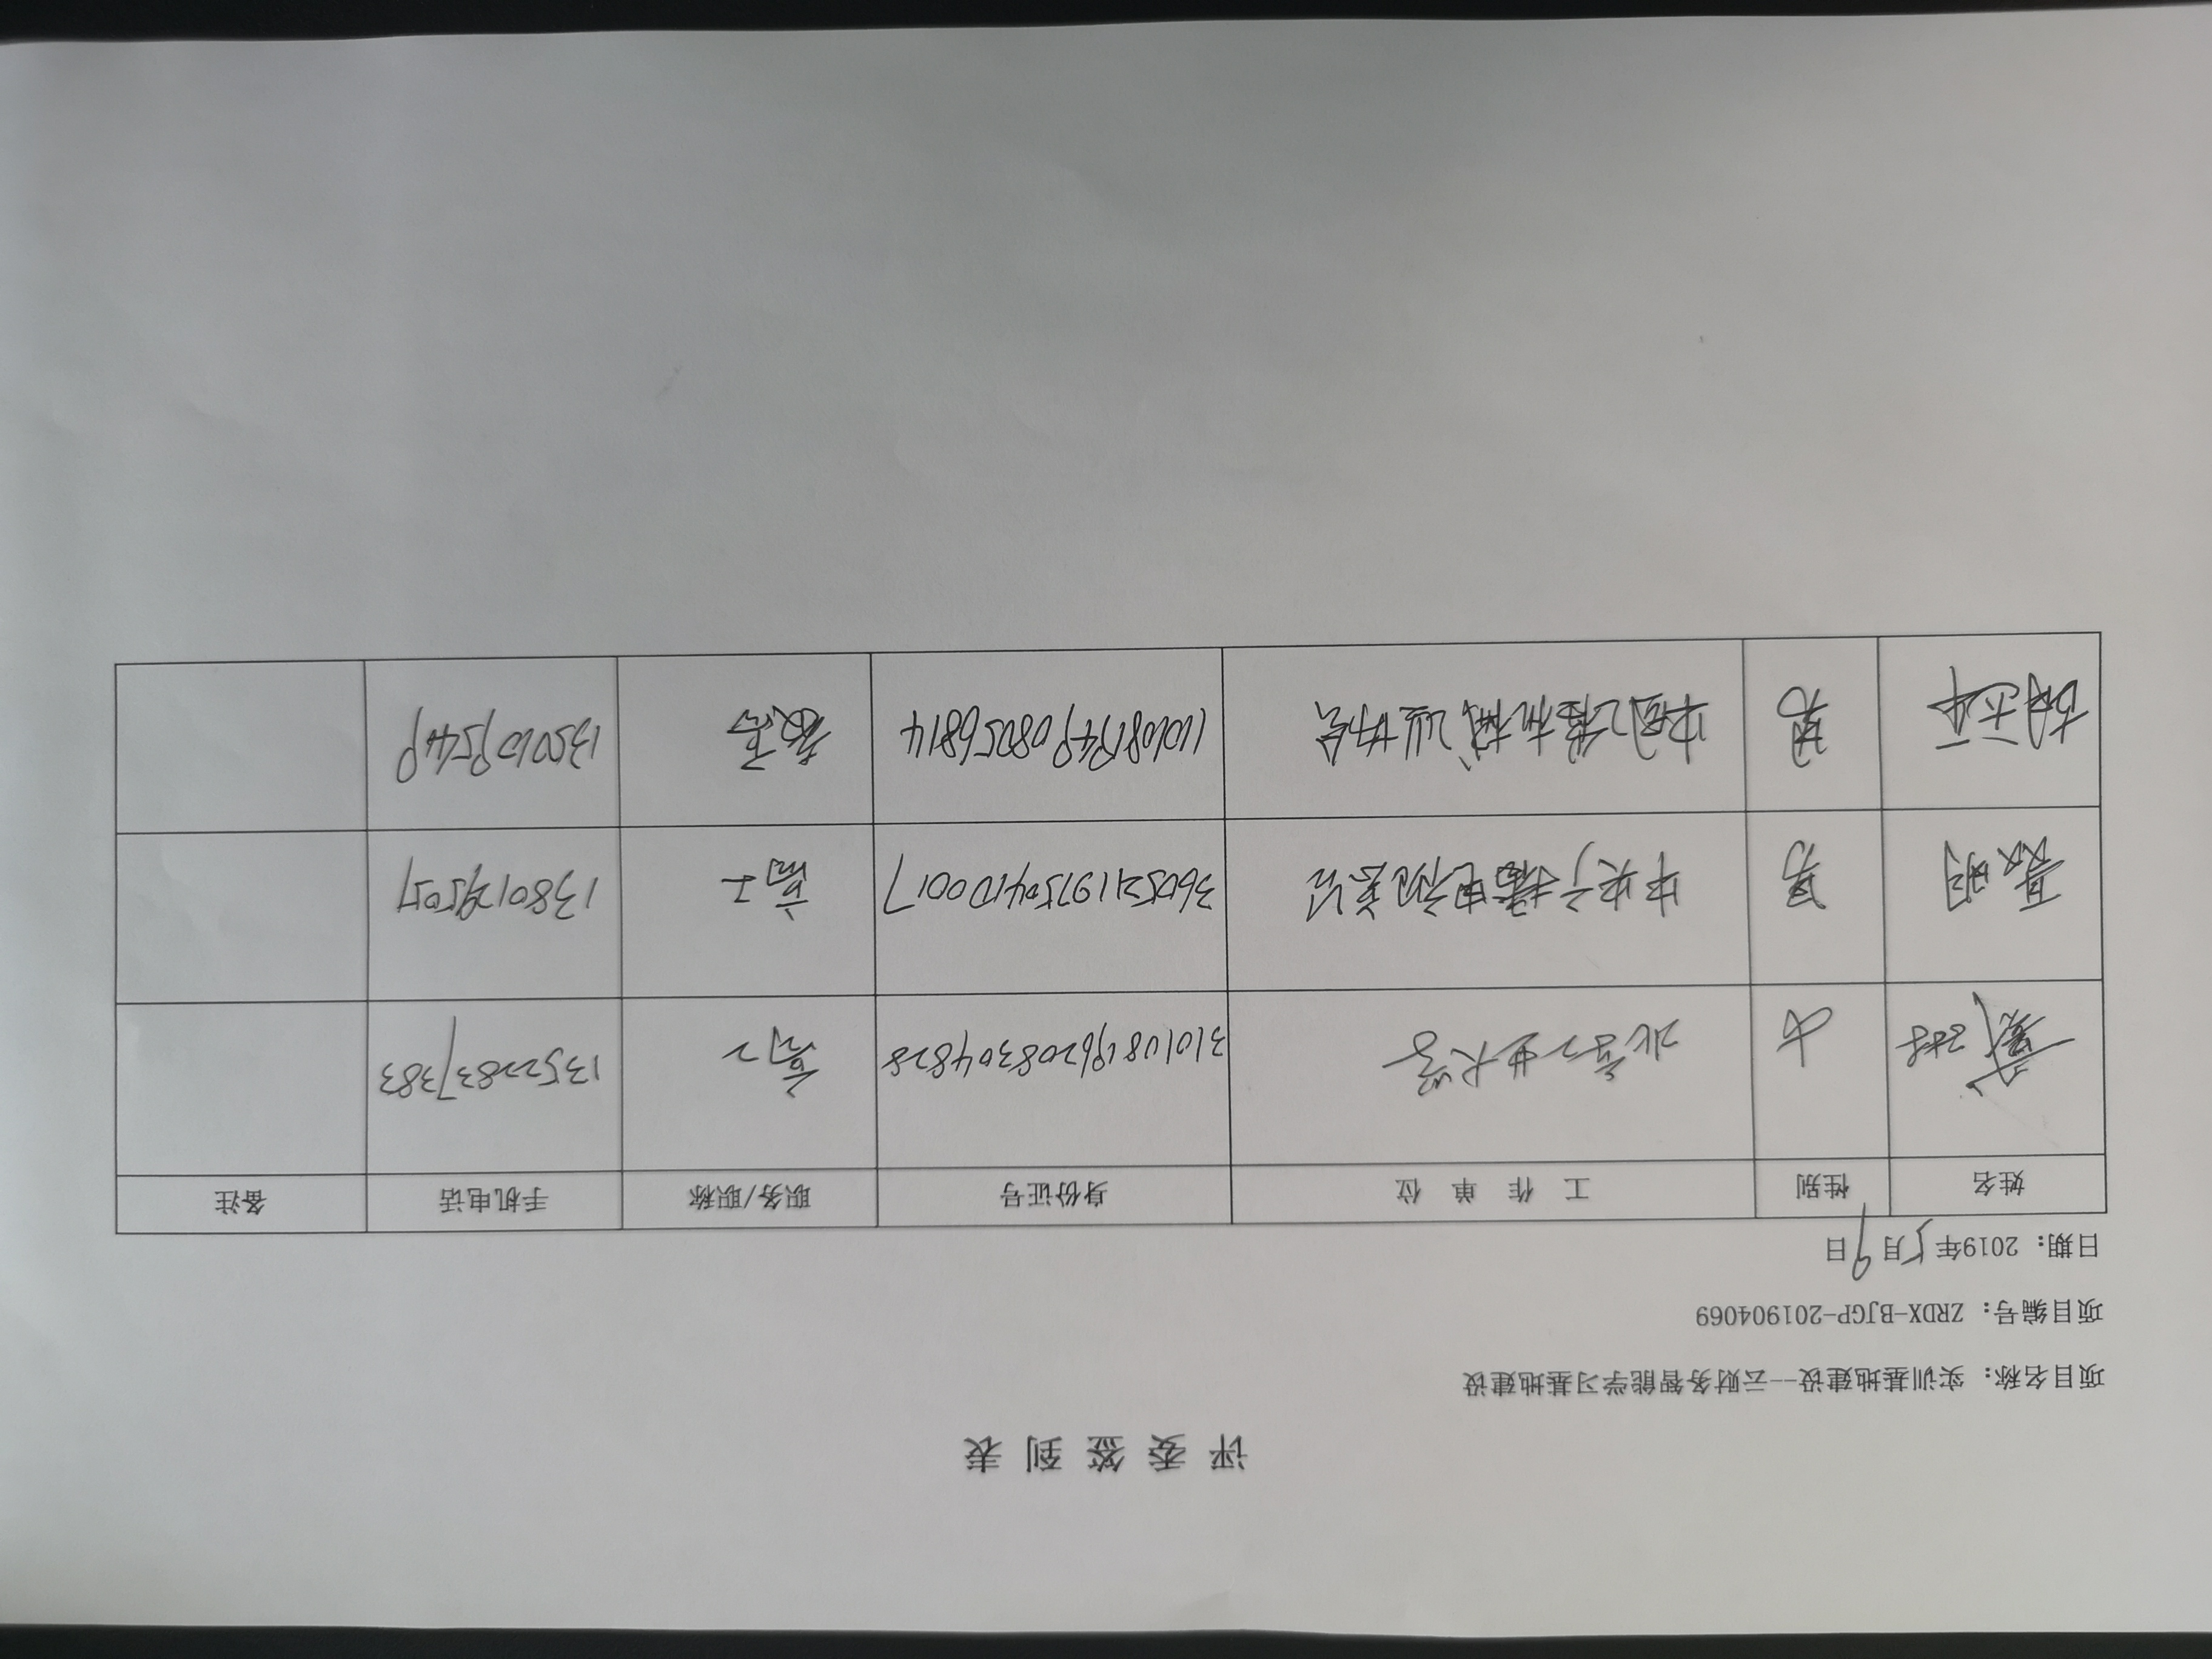 评委签到表
项目名称：实训基地建设--云财务智能学习基地建设
项目编号：ZRDX-BJGP-201904069
日期：2019年5月9日
姓名 性别 工作单位 身份证号 职务/职称 手机电话 备注
女 北京工业大学 310108196208304828 高工 13522837383
聂明 男 中央广播电视总台 高工
男 中国工程机械工业协会 教高